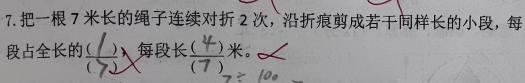 7.把一根7米长的绳子连续对折2次，沿折痕剪成若干同样长的小段，每
段占全长的(1)/(7)，每段长(4)/(7)米。
7÷